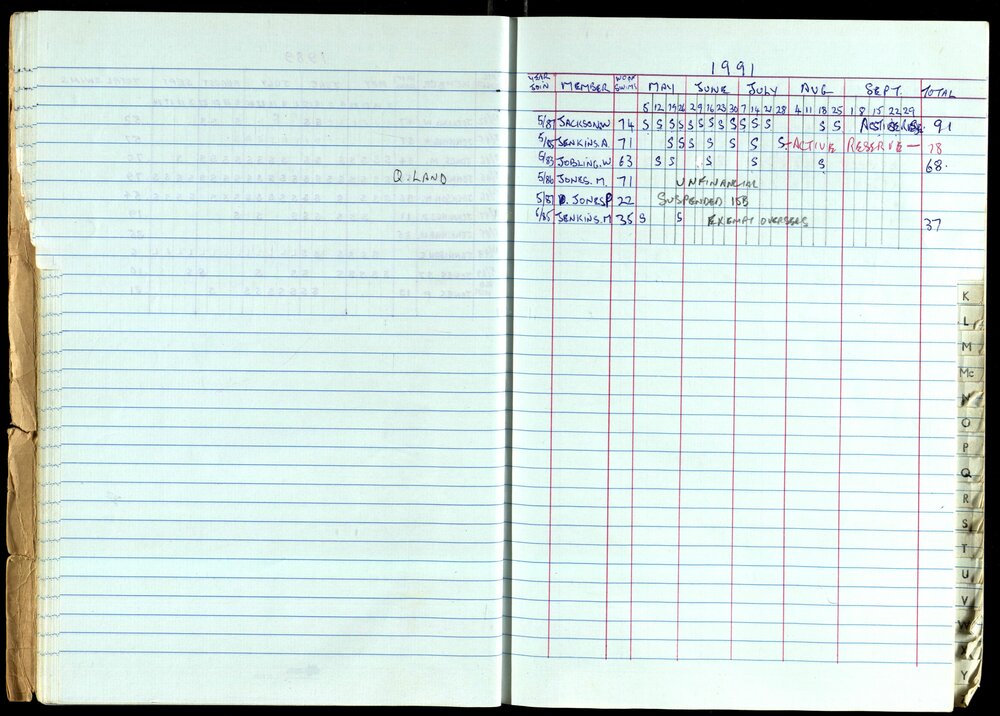 1991
YEAR JOIN MEMBER SWIMS MAY JUNE JULY AUG SEPT. TOTAL
5 12 19 26 2 9 16 23 30 7 14 21 28 4 11 18 25 1 8 15 22 29
5/87 JACKSON.W 74 S S S S S S S S S S S S S S ACTIVE RES. 91
5/85 JENKINS.A. 71 S S S S S S S - ACTIVE RESERVE - 78
5/83 JOBLING.W 63 S S S S S 68.
Q.LAND 5/86 JONES.M. 71 UNFINANCIAL
5/87 JONES P 22 SUSPENDED 15B
6/85 JENKINS.M 35 S S EXEMPT OVERSEAS 37
K
L
M
Mc
N
O
P
Q
R
S
T
U
V
W
X
Y